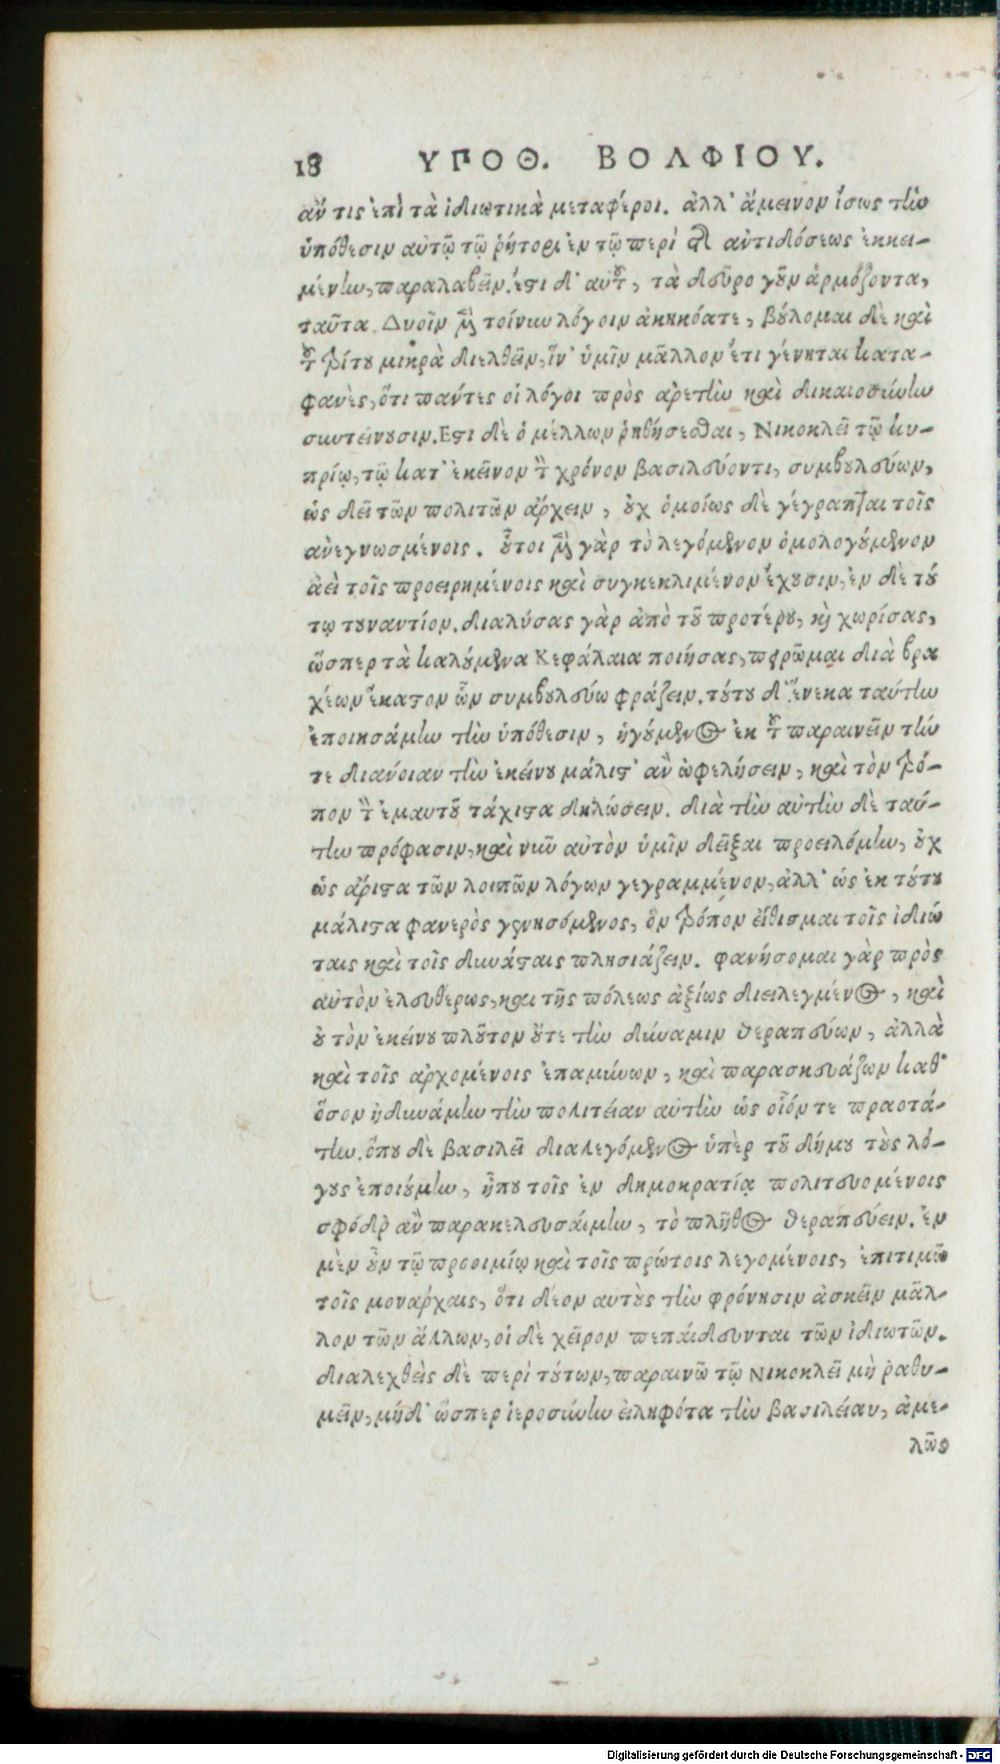 18 ΥΠΟΘ. ΒΟΛΦΙΟΥ.
ἄν τις ἐπὶ τὰ ἰδιωτικὰ μεταφέροι. ἀλλ᾽ ἄμεινον ἴσως τὴν
ὑπόθεσιν αὐτῷ τῷ ῥήτορι ἐν τῷ περὶ τῆς ἀντιδόσεως ἐκκει-
μένην, παραλαβεῖν. ἔστι δ᾽ αὐτοῦ, τὰ δεῦρο γοῦν ἁρμόζοντα,
ταῦτα. Δυοῖν μὲν τοίνυν λόγοιν ἀκηκόατε, βούλομαι δὲ καὶ
τοῦ τρίτου μικρὰ διελθεῖν, ἵν᾽ ὑμῖν μᾶλλον ἔτι γένηται κατα-
φανὲς, ὅτι πάντες οἱ λόγοι πρὸς ἀρετὴν καὶ δικαιοσύνην
συντείνουσιν. Εστι δὲ ὁ μέλλων ῥηθήσεσθαι, Νικοκλεῖ τῷ κυ-
πρίῳ, τῷ κατ᾽ ἐκεῖνον τὸν χρόνον βασιλεύοντι, συμβουλεύων,
ὡς δεῖ τῶν πολιτῶν ἄρχειν, οὐχ ὁμοίως δὲ γέγραπται τοῖς
ἀνεγνωσμένοις. οὗτοι μὲν γὰρ τὸ λεγόμενον ὁμολογούμενον
ἀεὶ τοῖς προειρημένοις καὶ συγκεκλιμένον ἔχουσιν, ἐν δὲ τού
τῳ τουναντίον. διαλύσας γὰρ ἀπὸ τοῦ προτέρου, καὶ χωρίσας,
ὥσπερ τὰ καλούμενα Κεφάλαια ποιήσας, πειρῶμαι διὰ βρα
χέων ἕκαστον ὧν συμβουλεύω φράζειν. τούτου δ᾽ ἕνεκα ταύτην
ἐποιησάμην τὴν ὑπόθεσιν, ἡγούμενος ἐκ τοῦ παραινεῖν τήν
τε διάνοιαν τὴν ἐκείνου μάλιστ᾽ ἂν ὠφελήσειν, καὶ τὸν τρό-
πον τὸν ἐμαυτοῦ τάχιστα δηλώσειν. διὰ τὴν αὐτὴν δὲ ταύ-
την πρόφασιν, καὶ νῦν αὐτὸν ὑμῖν δεῖξαι προειλόμην, οὐχ
ὡς ἄριστα τῶν λοιπῶν λόγων γεγραμμένον, ἀλλ᾽ ὡς ἐκ τούτου
μάλιστα φανερὸς γενησόμενος, ὃν τρόπον εἴθισμαι τοῖς ἰδιώ
ταις καὶ τοῖς δυνάσταις πλησιάζειν. φανήσομαι γὰρ πρὸς
αὐτὸν ἐλευθέρως, καὶ τῆς πόλεως ἀξίως διειλεγμένος, καὶ
οὐ τὸν ἐκείνου πλοῦτον οὔτε τὴν δύναμιν θεραπεύων, ἀλλὰ
καὶ τοῖς ἀρχομένοις ἐπαμύνων, καὶ παρασκευάζων καθ᾽
ὅσον ἠδυνάμην τὴν πολιτείαν αὐτὴν ὡς οἷόν τε πραοτά-
την. ὅπου δὲ βασιλεῖ διαλεγόμενος ὑπὲρ τοῦ δήμου τοὺς λό-
γους ἐποιούμην, ἦπου τοῖς ἐν δημοκρατίᾳ πολιτευομένοις
σφόδρ᾽ ἂν παρακελευσαίμην, τὸ πλῆθος θεραπεύειν. ἐν
μὲν οὖν τῷ προοιμίῳ καὶ τοῖς πρώτοις λεγομένοις, ἐπιτιμῶ
τοῖς μονάρχαις, ὅτι δέον αὐτοὺς τὴν φρόνησιν ἀσκεῖν μᾶλ-
λον τῶν ἄλλων, οἱ δὲ χεῖρον πεπαίδευνται τῶν ἰδιωτῶν.
διαλεχθεὶς δὲ περὶ τούτων, παραινῶ τῷ Νικοκλεῖ μὴ ῥαθυ-
μεῖν, μήδ᾽ ὥσπερ ἱεροσύνην εἰληφότα τὴν βασιλείαν, ἀμε-
λῶς
Digitalisierung gefördert durch die Deutsche Forschungsgemeinschaft - DFG